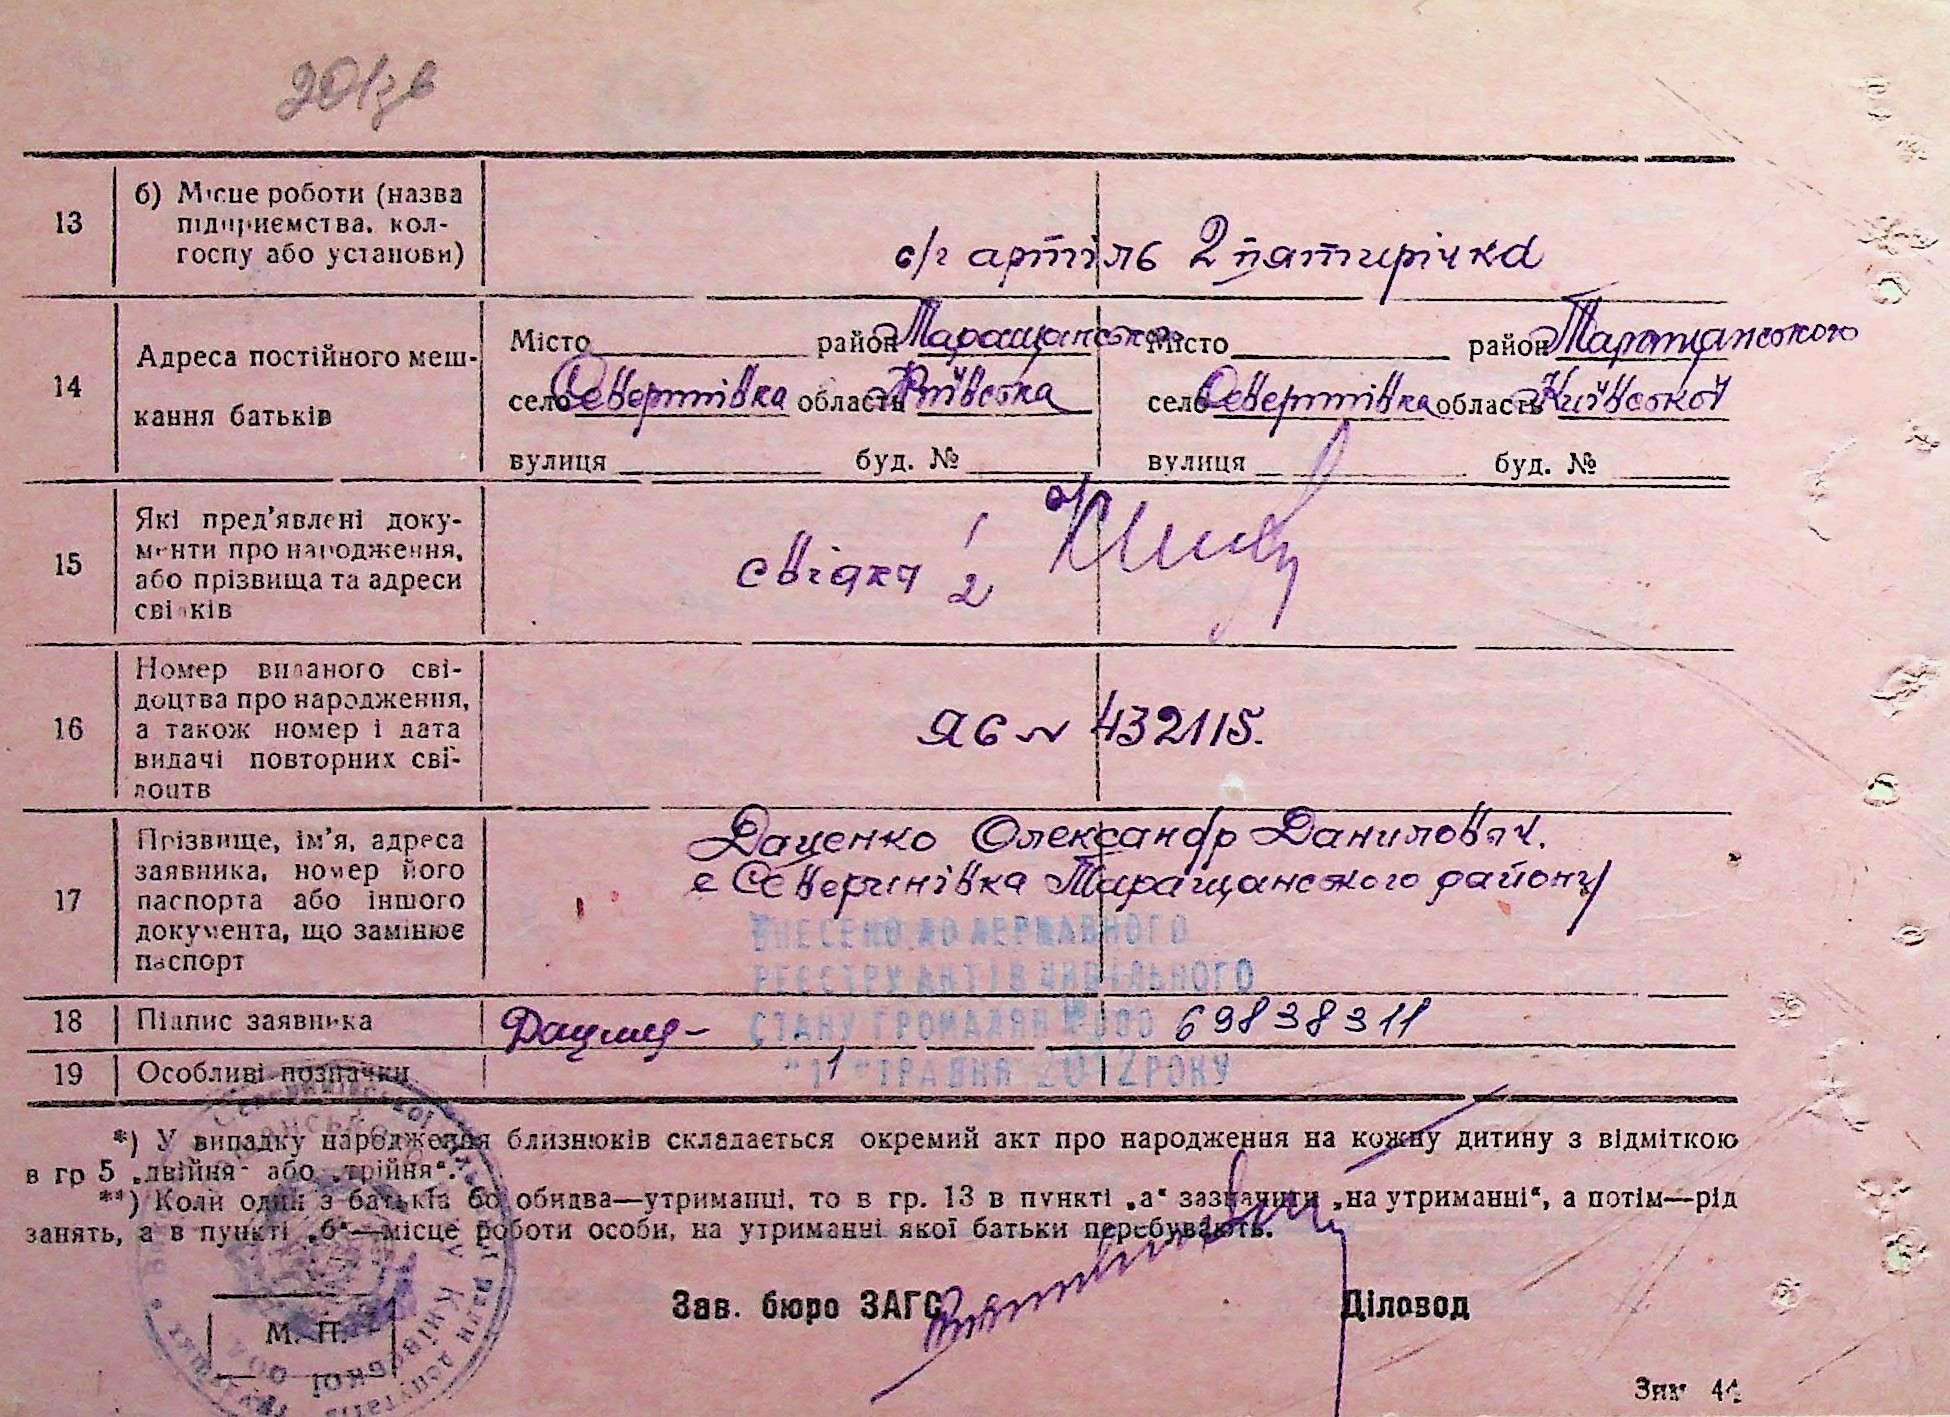 201зв
13 б) Місце роботи (назва
підприємства, кол-
госпу або установи)
с/г артіль 2 пятирічка
14 Адреса постійного меш-
кання батьків
Місто район Таращанського Місто район Таращанського
село Северинівка область Київська село Северинівка область Київської
вулиця буд. № вулиця буд. №
15 Які пред'явлені доку-
менти про народження,
або прізвища та адреси
свідків
свідки 1
2
16 Номер виданого сві-
доцтва про народження,
а також номер і дата
видачі повторних сві-
доцтв
ЯС № 432115.
17 Прізвище, ім'я, адреса
заявника, номер його
паспорта або іншого
документа, що замінює
паспорт
Даценко Олександр Данилович.
с Северинівка Таращанського району
ВНЕСЕНО ДО ДЕРЖАВНОГО
РЕЄСТРУ АКТІВ ЦИВІЛЬНОГО
СТАНУ ГРОМАДЯН №000 69838311
"11" ТРАВНЯ 2012 РОКУ
18 Підпис заявника
19 Особливі позначки
*) У випадку народження близнюків складається окремий акт про народження на кожну дитину з відміткою
в гр 5 „двійня" або „трійня".
**) Коли один з батьків бо обидва—утриманці, то в гр. 13 в пункті „а" зазначити „на утриманні", а потім—рід
занять, а в пункті „б"—місце роботи особи, на утриманні якої батьки перебувають.
Зав. бюро ЗАГС Діловод
М. П.